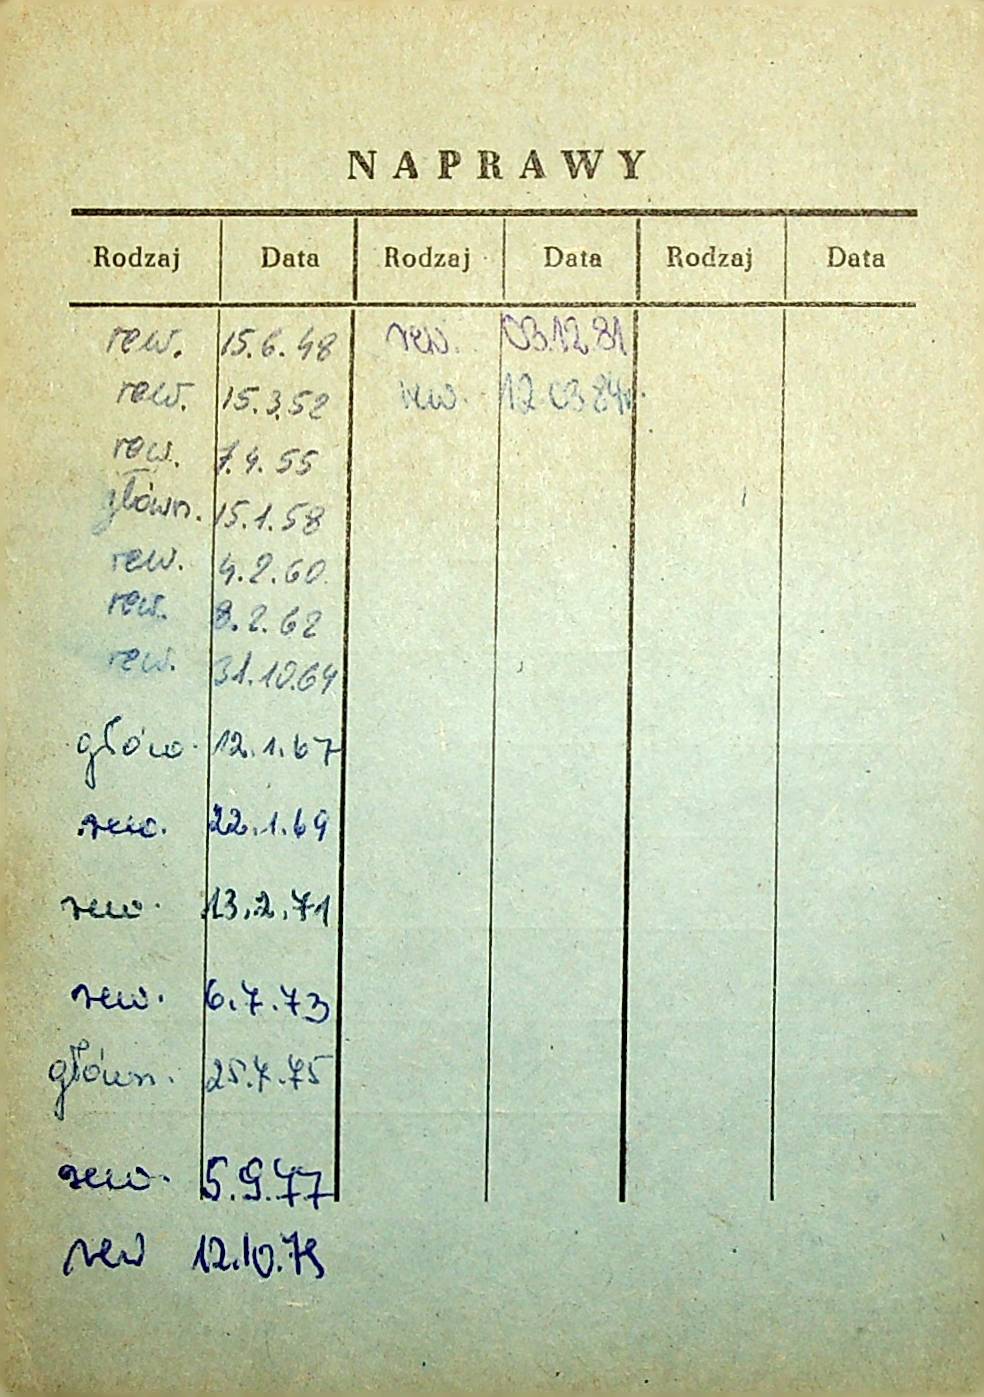 NAPRAWY
Rodzaj Data Rodzaj Data Rodzaj Data
rew. 15.6.48 rew. 03.12.81
rew. 15.3.52 rew. 12 03 84r.
rew. 7.4.55
główn. 15.1.58
rew. 4.2.60
rew. 8.2.62
rew. 31.10.64
główn. 12.1.67
rew. 22.1.69
rew. 13.2.71
rew. 6.7.73
główn. 25.7.75
rew. 5.9.77
rew 12.10.79